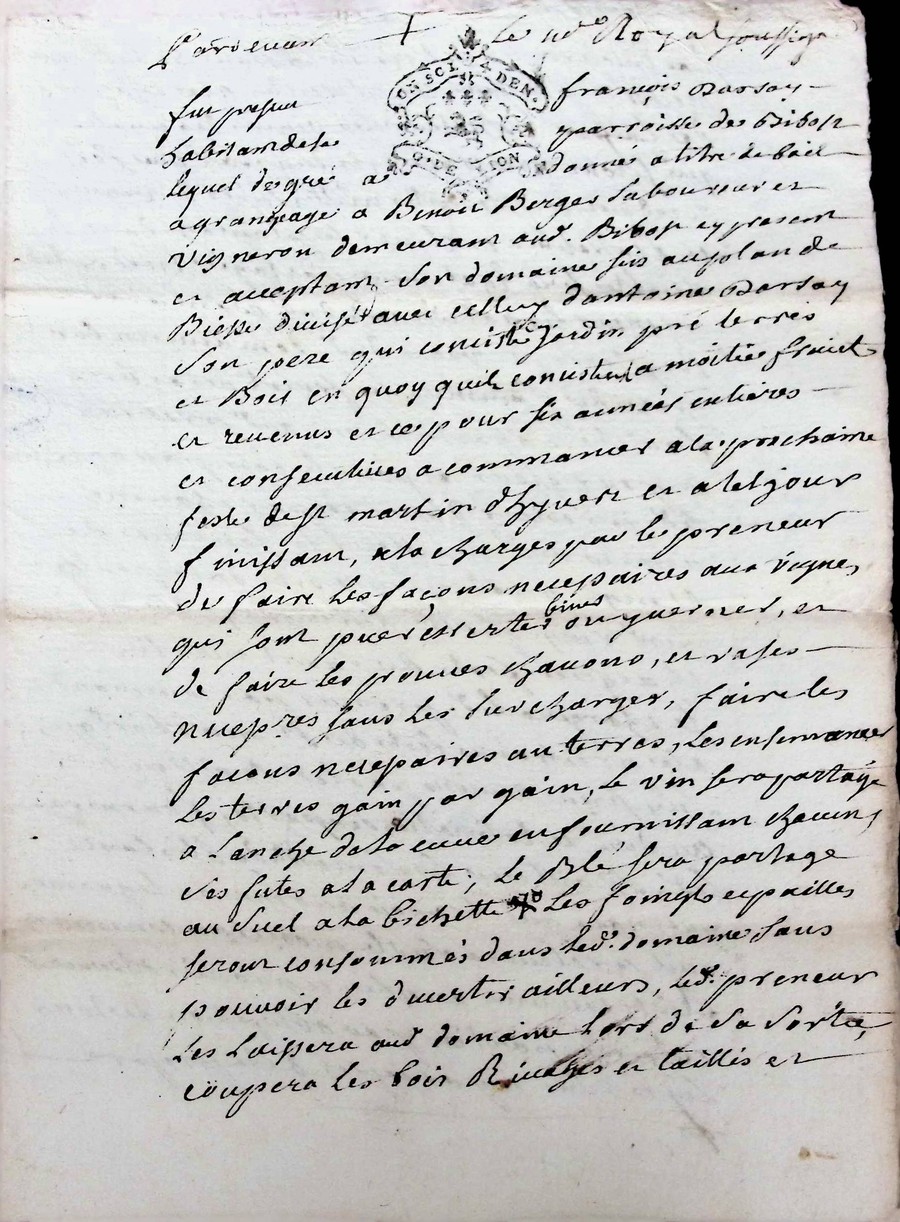 Pardevant le no.re Royal soussigné
ON SCI. DEM.
G. DE LION
fut present françois Darsay
habitant de la parroisse de Bibost
lequel de gré a donné a titre de bail
a grangeage a Benoit Berger laboureur et
vigneron demeurant aud. Bibost cy present
et acceptant son domaine sis au plan de
Biesse divisé avec celluy d'antoine Darsay
son pere qui consiste jardin pré terres
et Bois en quoy quil consiste a moitié fruict
et revenus et ce pour six années entieres
et consecutives a commancer a la prochaine
feste de st martin dhyvert et a tel jour
finissant, a la charges par le preneur
de faire les façons necessaires aux vignes
qui sont biner ou
de faire les prouves chavons, et rases
necess.res sans les surcharger, faire les
facons necessaires au terres, les ensemancer
les terres gain par gain, le vin sera partagé
a lanche de la cuve en fournissant chacun
ses futes a la carte, le Blé sera partage
au suel a la bichette les foings et pailles
seront consommés dans led. domaine sans
pouvoir les divertir ailleurs, led. preneur
les laissera aud domaine lors de sa sortie,
coupera les bois Rivages et taillis et